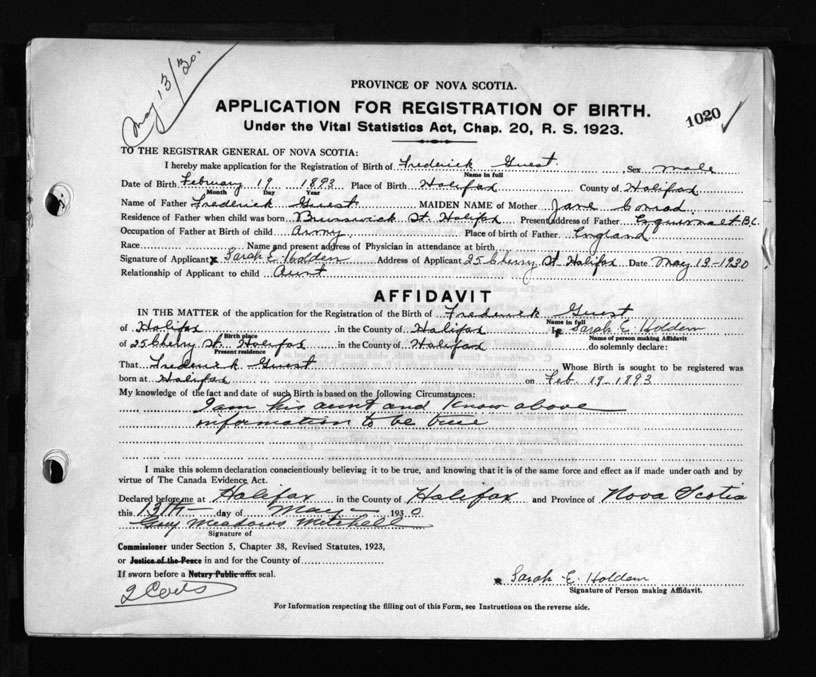 May 13/30.
PROVINCE OF NOVA SCOTIA.
APPLICATION FOR REGISTRATION OF BIRTH.
1020
Under the Vital Statistics Act, Chap. 20, R. S. 1923.
TO THE REGISTRAR GENERAL OF NOVA SCOTIA:
I hereby make application for the Registration of Birth of Frederick Guest Sex male
Name in full
Date of Birth February 19 1893 Place of Birth Halifax County of Halifax
Month Day Year
Name of Father Frederick Guest MAIDEN NAME of Mother Jane Conrad
Residence of Father when child was born Brunswick St. Halifax Present address of Father Esquimalt B.C.
Occupation of Father at Birth of child Army Place of birth of Father England
Race Name and present address of Physician in attendance at birth
Signature of Applicant x Sarah E. Holdem Address of Applicant 25 Cherry St Halifax Date May 13-1930
Relationship of Applicant to child Aunt
AFFIDAVIT
IN THE MATTER of the application for the Registration of the Birth of Frederick Guest
Name in full
of Halifax in the County of Halifax I, Sarah E. Holdem
Birth place Name of person making Affidavit
of 25 Cherry St. Halifax in the County of Halifax do solemnly declare:
Present residence
That Frederick Guest Whose Birth is sought to be registered was
born at Halifax on Feb. 19-1893
My knowledge of the fact and date of such Birth is based on the following Circumstances:
I am his aunt and know above
information to be true
I make this solemn declaration conscientiously believing it to be true, and knowing that it is of the same force and effect as if made under oath and by
virtue of The Canada Evidence Act.
Declared before me at Halifax in the County of Halifax and Province of Nova Scotia
this 13th day of May 1930
Guy Meadows Mitchell
Signature of
Commissioner under Section 5, Chapter 38, Revised Statutes, 1923,
or Justice of the Peace in and for the County of
If sworn before a Notary Public affix seal.
x Sarah E. Holdem
Signature of Person making Affidavit.
For Information respecting the filling out of this Form, see Instructions on the reverse side.